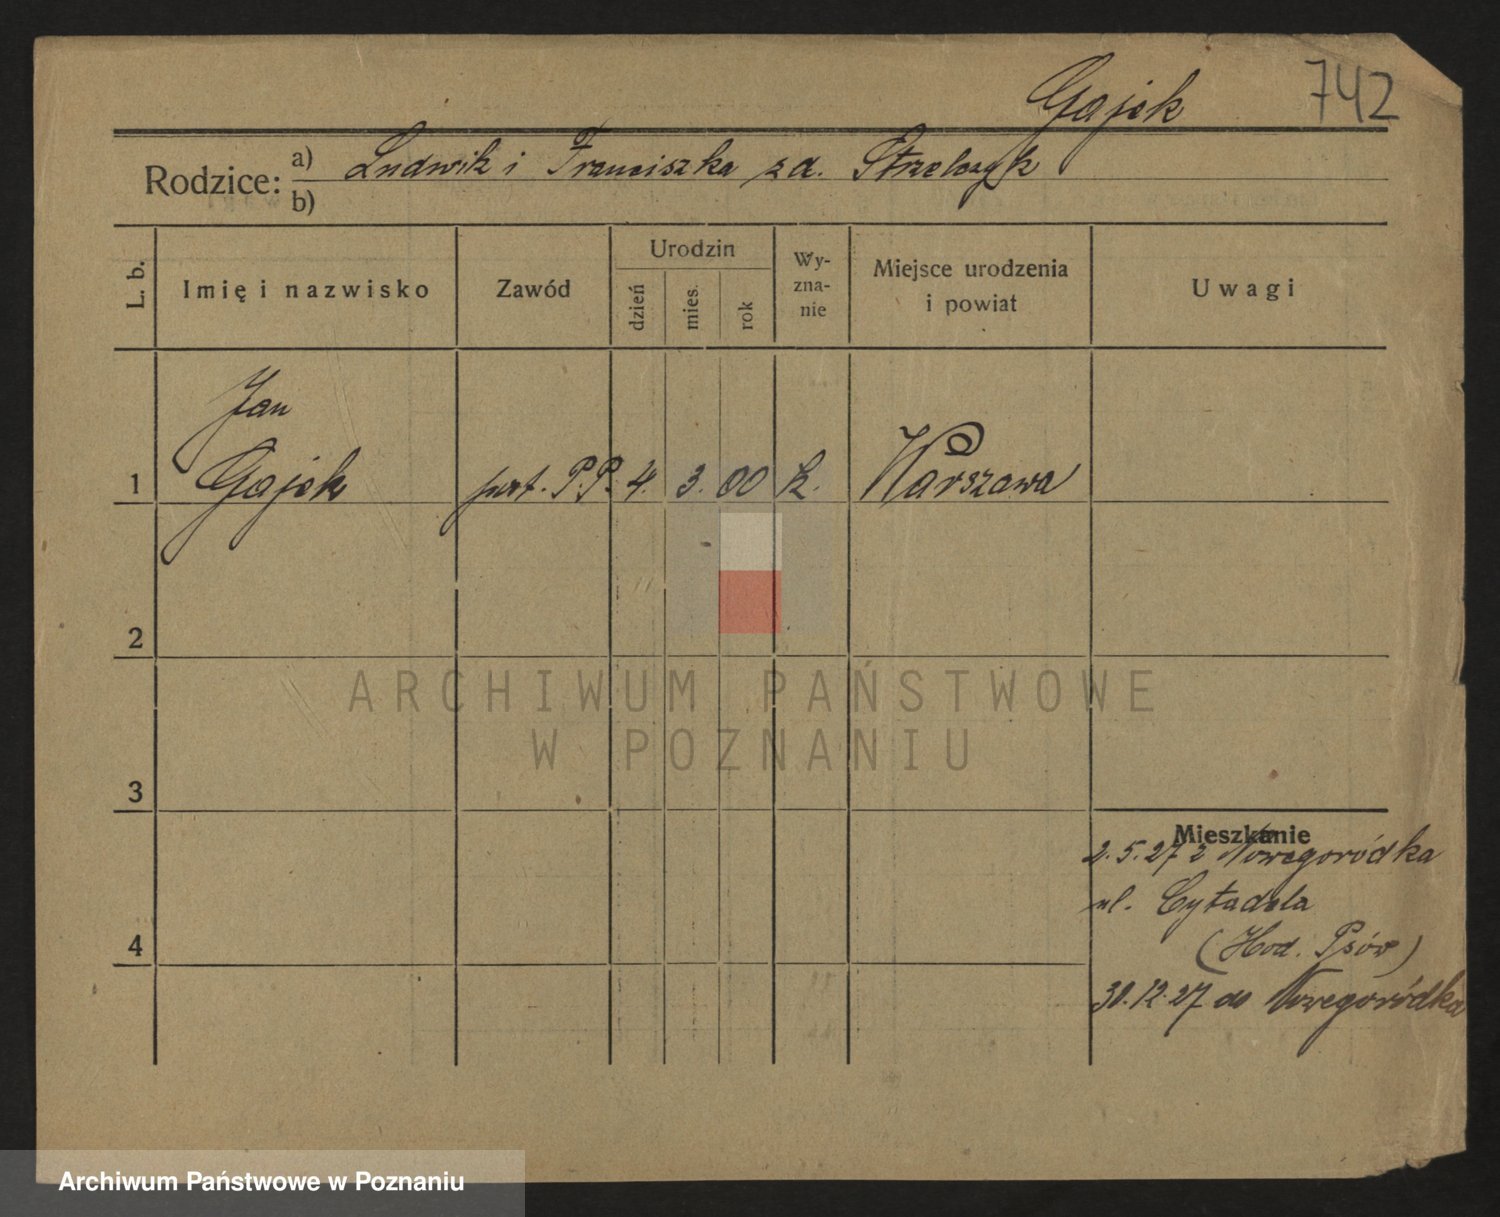 Gajek 742
Rodzice: a) Ludwik i Franciszka z d. Strzelczyk
b)
L. b. Imię i nazwisko Zawód Urodzin dzień mies. rok Wy-zna-nie Miejsce urodzenia i powiat Uwagi
Jan
1 Gajek post. P.P. 4. 3. 00 k. Warszawa
2
ARCHIWUM PAŃSTWOWE
W POZNANIU
3
Mieszkanie
2.5.27 z Nowegoródka
ul. Cytadela
4 (Hod. Psów)
30.12.27 do Nowegoródka
Archiwum Państwowe w Poznaniu